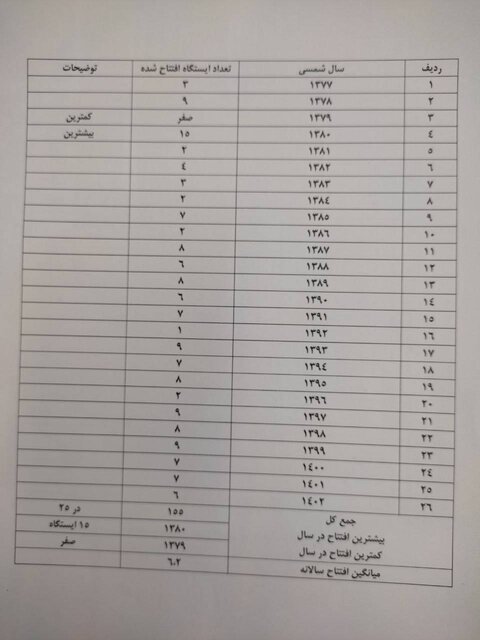 ردیف سال شمسی تعداد ایستگاه افتتاح شده توضیحات
۱ ۱۳۷۷ ۳
۲ ۱۳۷۸ ۹
۳ ۱۳۷۹ صفر کمترین
۴ ۱۳۸۰ ۱۵ بیشترین
۵ ۱۳۸۱ ۲
۶ ۱۳۸۲ ۴
۷ ۱۳۸۳ ۳
۸ ۱۳۸۴ ۲
۹ ۱۳۸۵ ۷
۱۰ ۱۳۸۶ ۲
۱۱ ۱۳۸۷ ۸
۱۲ ۱۳۸۸ ۶
۱۳ ۱۳۸۹ ۸
۱۴ ۱۳۹۰ ۶
۱۵ ۱۳۹۱ ۷
۱۶ ۱۳۹۲ ۱
۱۷ ۱۳۹۳ ۹
۱۸ ۱۳۹۴ ۷
۱۹ ۱۳۹۵ ۸
۲۰ ۱۳۹۶ ۲
۲۱ ۱۳۹۷ ۹
۲۲ ۱۳۹۸ ۸
۲۳ ۱۳۹۹ ۹
۲۴ ۱۴۰۰ ۷
۲۵ ۱۴۰۱ ۷
۲۶ ۱۴۰۲ ۶
جمع کل ۱۵۵ در ۲۵
بیشترین افتتاح در سال ۱۳۸۰ ۱۵ ایستگاه
کمترین افتتاح در سال ۱۳۷۹ صفر
میانگین افتتاح سالانه ۶.۲